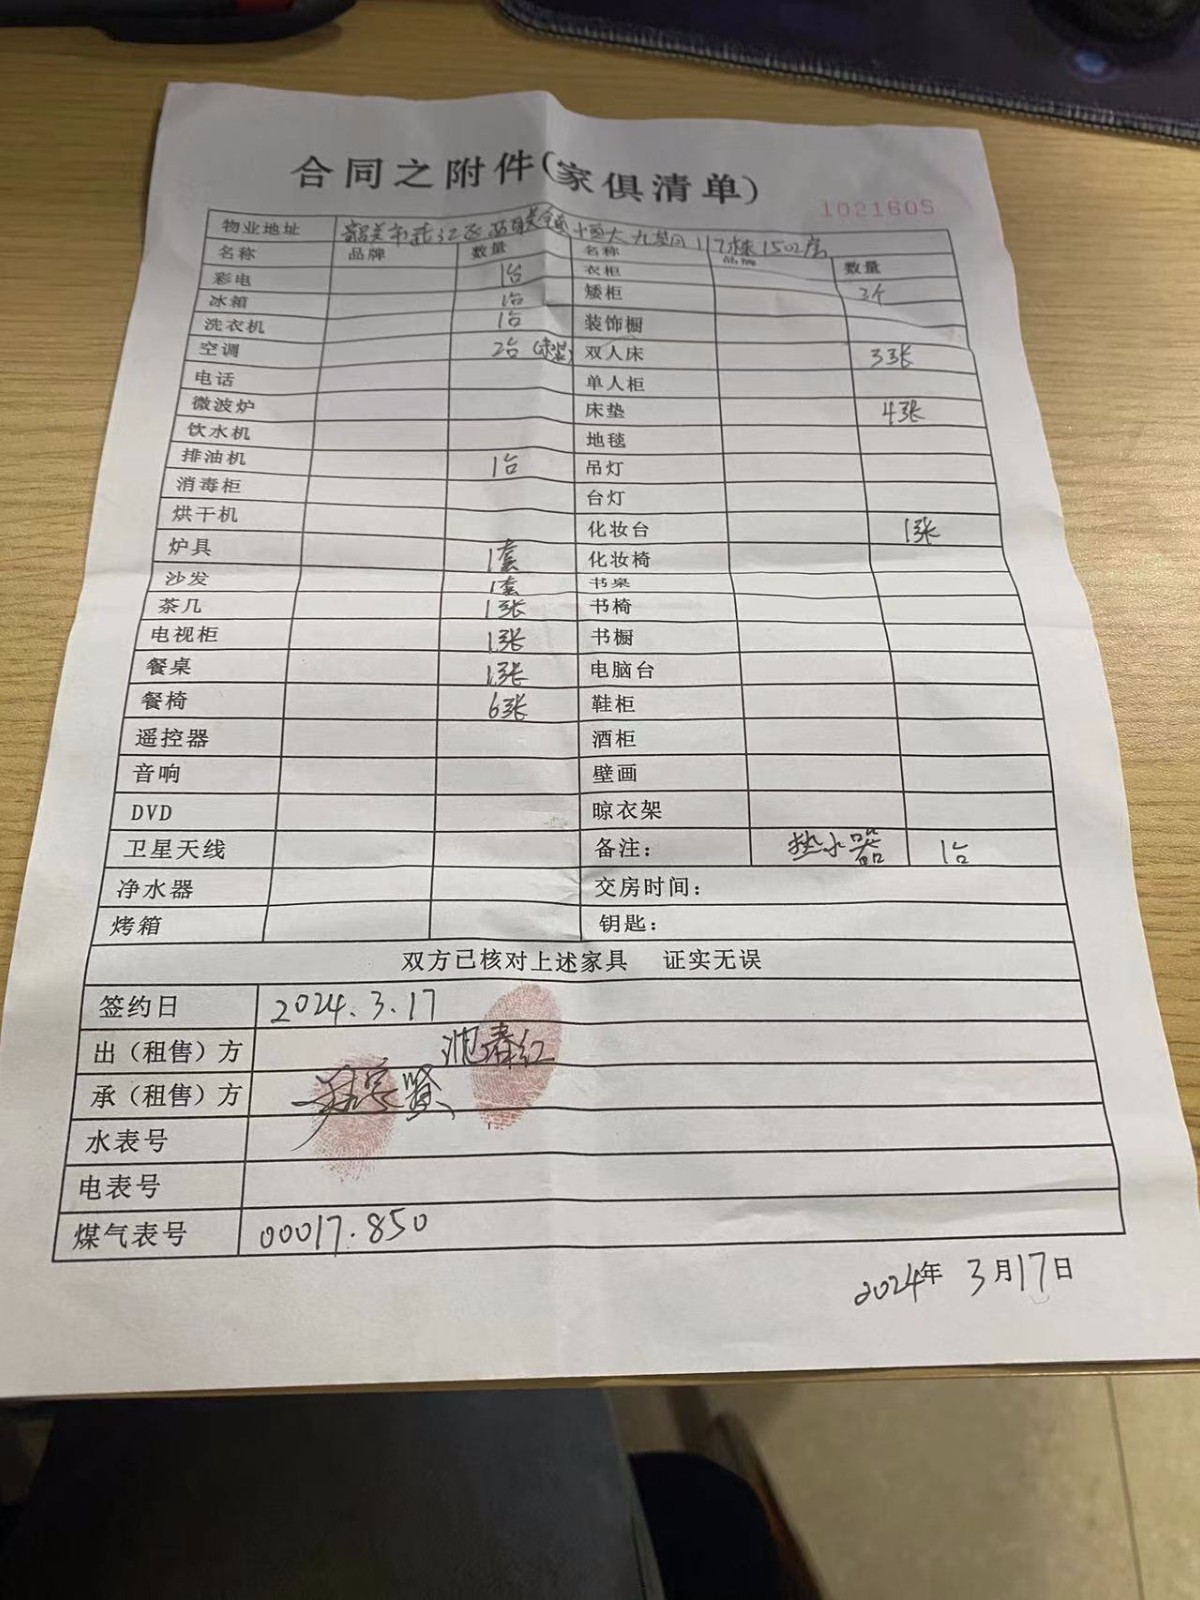 合同之附件(家俱清单)
1021605
物业地址 韶关市武江区西联镇恒大 117栋1502房
名称 品牌 数量 名称 品牌 数量
彩电 1台 衣柜
冰箱 1台 矮柜 3个
洗衣机 1台 装饰橱
空调 2台 双人床 3张
电话 单人柜
微波炉 床垫 4张
饮水机 地毯
排油机 1台 吊灯
消毒柜 台灯
烘干机 化妆台 1张
炉具 1套 化妆椅
沙发 1套 书桌
茶几 1张 书椅
电视柜 1张 书橱
餐桌 1张 电脑台
餐椅 6张 鞋柜
遥控器 酒柜
音响 壁画
DVD 晾衣架
卫星天线 备注: 热水器 1台
净水器 交房时间:
烤箱 钥匙:
双方已核对上述家具 证实无误
签约日 2024.3.17
出（租售）方 春红
承（租售）方
水表号
电表号
煤气表号 00017.850
2024年 3月17日